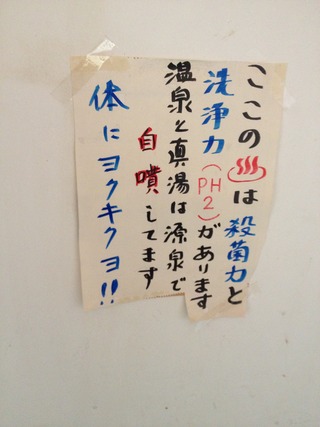 ここの♨は殺菌力と
洗浄力(PH2)があります
温泉と真湯は源泉で
自噴してます
体にヨクキクヨ!!